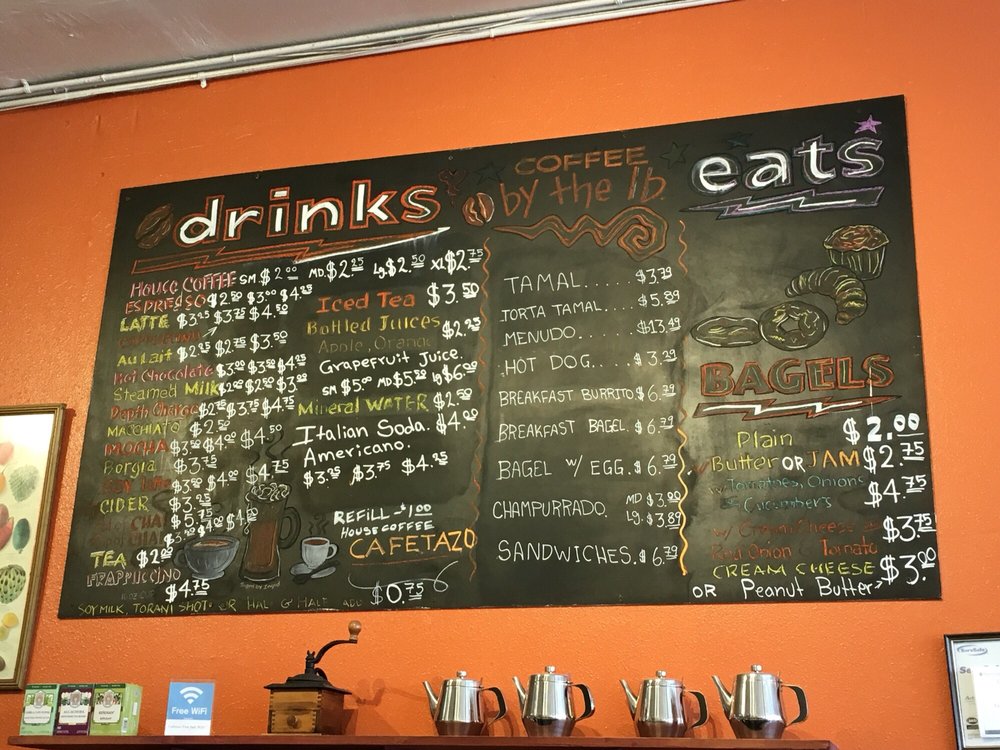 drinks
HOUSE COFFEE SM $2.00 MD. $2.25 Lg $2.50 XL $2.75
ESPRESSO $2.50 $3.00 $4.25
LATTE $3.25 $3.75 $4.50
Au Lait $2.25 $2.75 $3.50
Hot Chocolate $3.00 $3.50 $4.25
Steamed Milk $2.00 $2.50 $3.00
Depth Charge $2.75 $3.75 $4.75
MACCHIATO $2.50
MOCHA $3.50 $4.00 $4.50
Borgia $3.75
$4.00 $4.75
CIDER $3.25
CHAI
TEA $2.00
FRAPPUCCINO
$4.75
Iced Tea $3.50
Bottled Juices
Apple, Orange $2.25
Grapefruit Juice.
SM $5.00 MD $5.50 lg $6.00
Mineral WATER $2.50
Italian Soda. $4.00
Americano.
$3.25 $3.75 $4.25
REFILL $1.00
HOUSE COFFEE
CAFETAZO
SOY MILK, TORANI SHOT, OR HALF & HALF, ADD $0.75
COFFEE
by the lb.
TAMAL..... $3.79
TORTA TAMAL.... $5.89
MENUDO..... $13.49
HOT DOG..... $3.29
BREAKFAST BURRITO $6.79
BREAKFAST BAGEL. $6.79
BAGEL W/ EGG. $6.79
CHAMPURRADO. MD $3.00
Lg. $3.89
SANDWICHES. $6.79
eats
BAGELS
Plain $2.00
Butter OR JAM $2.75
w/ Tomatoes, Onions
Cucumbers $4.75
w/ Cream Cheese
Red Onion & Tomato $3.75
CREAM CHEESE
OR Peanut Butter $3.00
Free WiFi